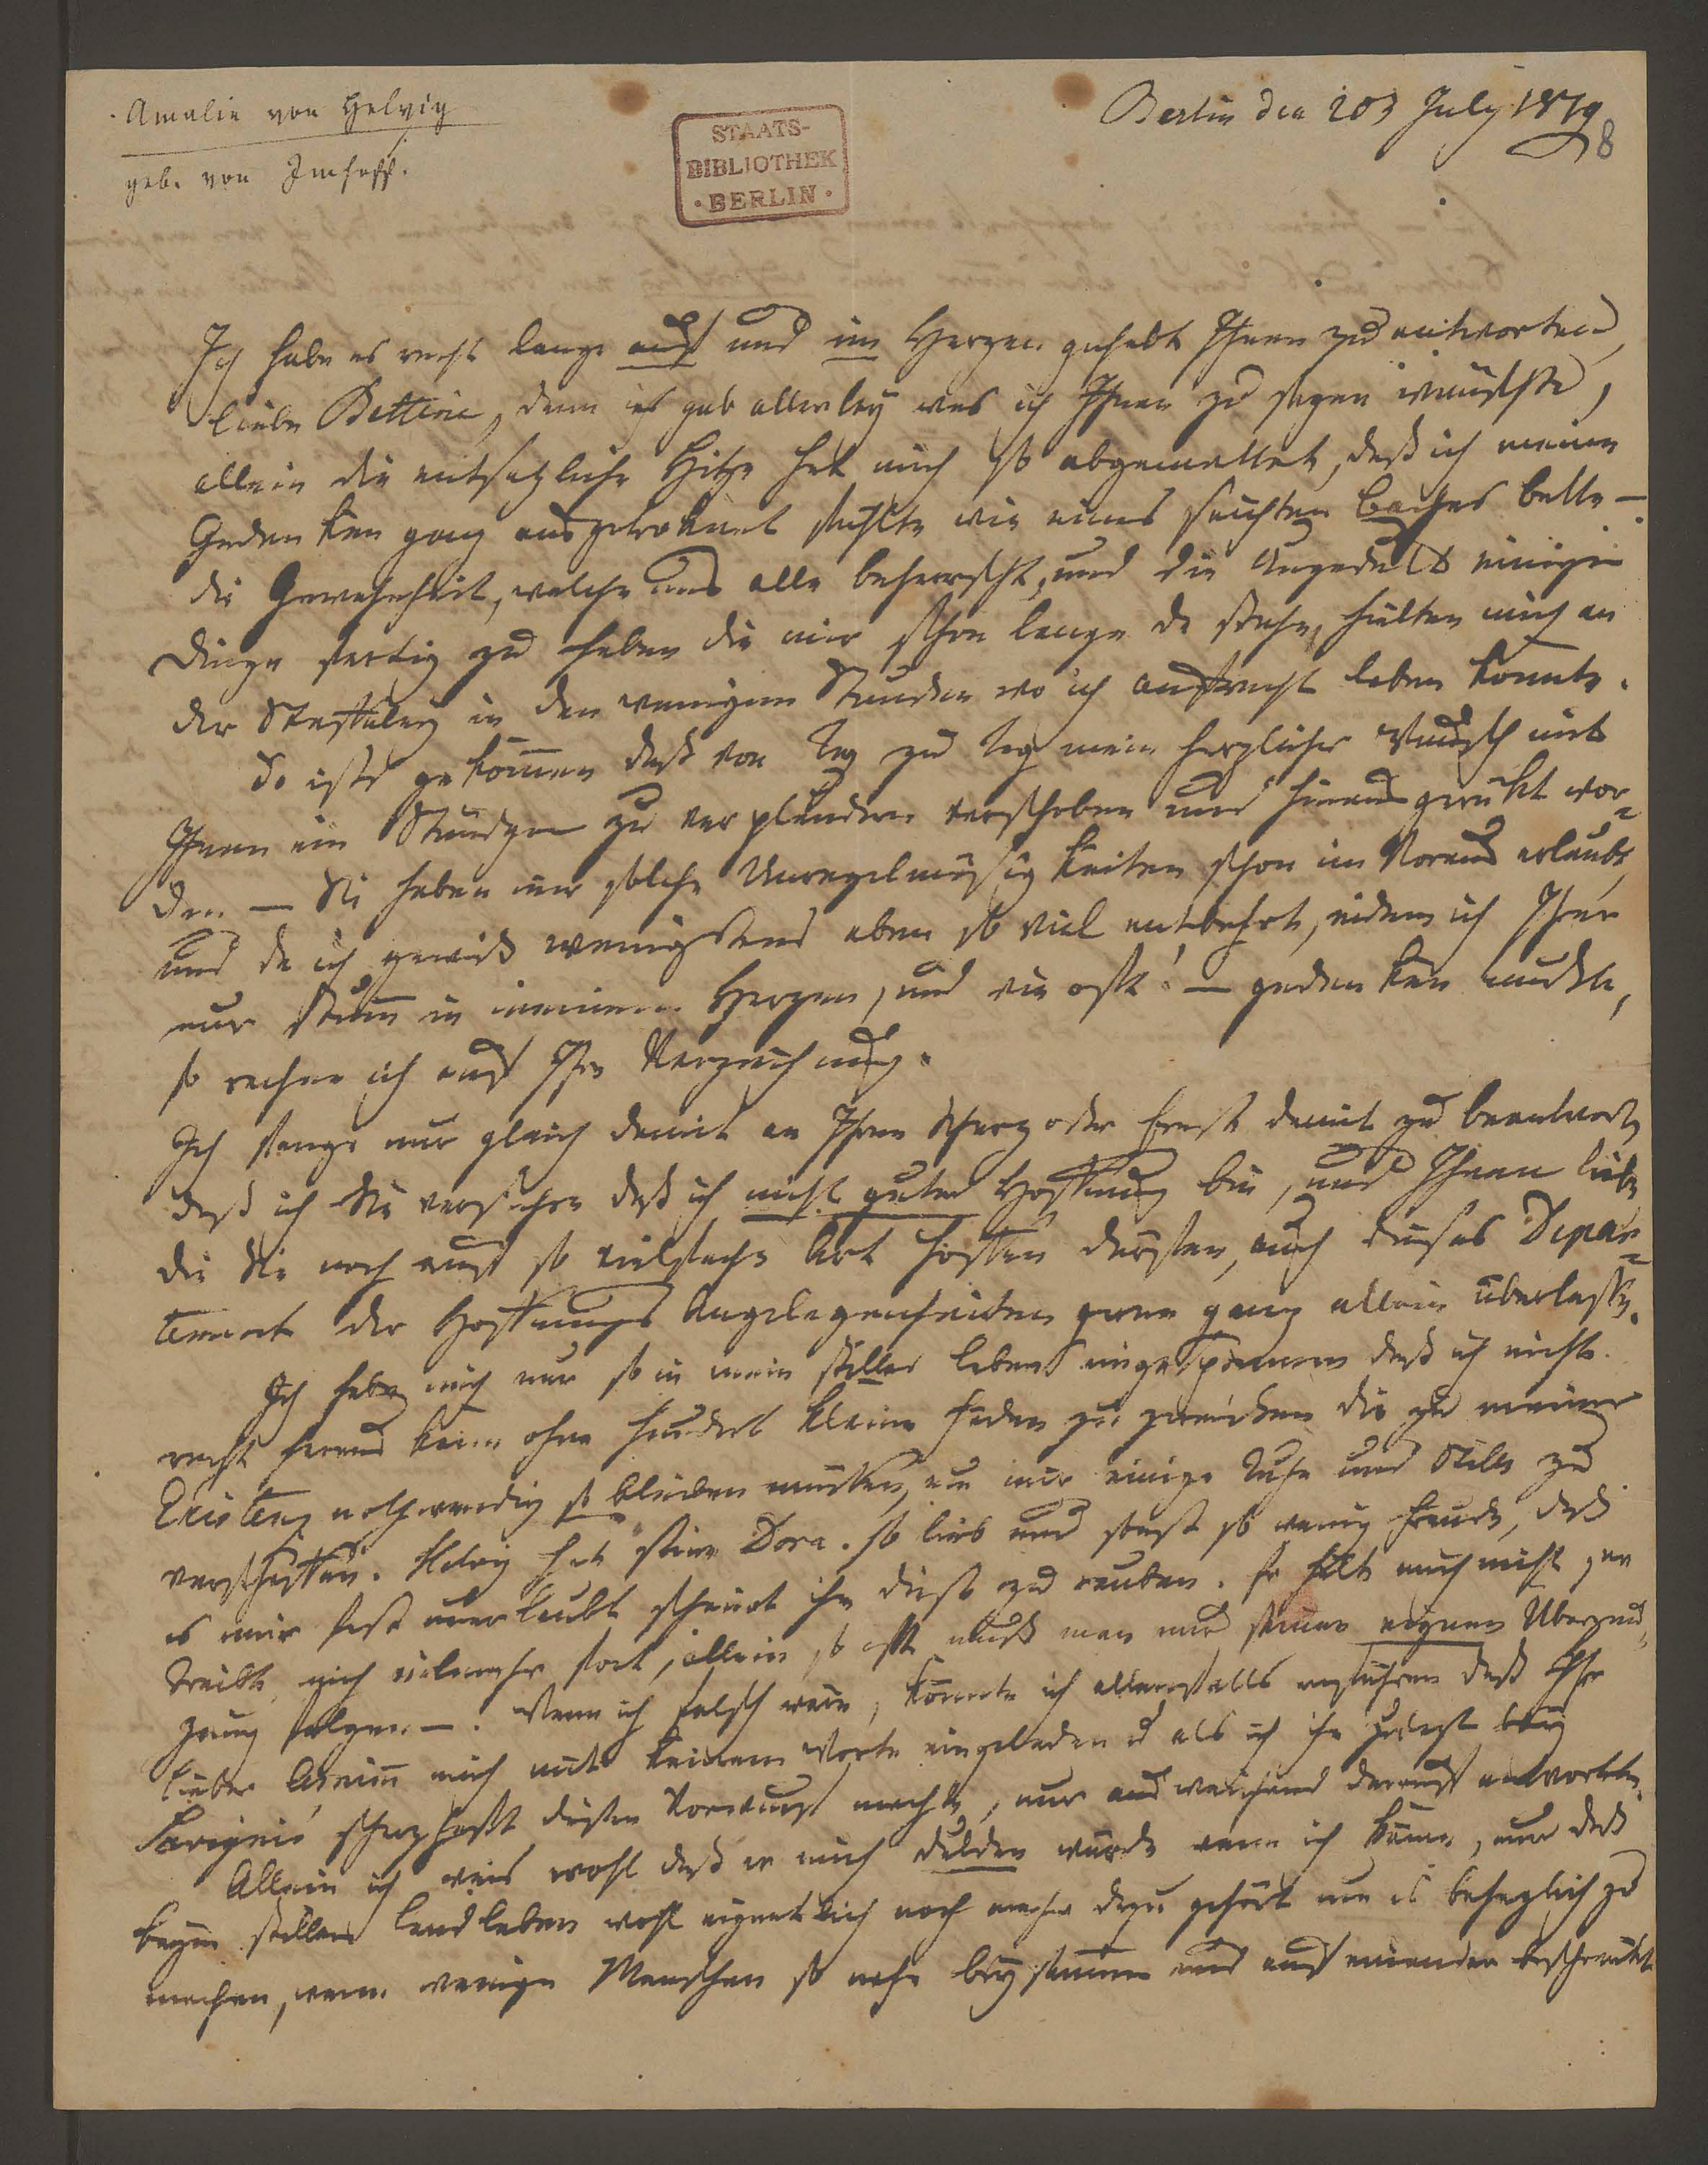 Amalie von Helvig
geb. von Imhoff.
STAATS-
BIBLIOTHEK
· BERLIN ·
Berlin den 20t July 1819
8
Ich habe es recht lange auf und im Herzen gehabt Ihnen zu antworten,
liebe Bettine, denn es gab allerley was ich Ihnen zu sagen wünschte,
allein die entsezliche Hitze hat mich so abgemattet, daß ich meine
Gedanken ganz ausgetroknet fühlte wie eines seichten Baches Bette —
die Gewohnheit, welche uns alle beherrscht, und die Ungeduld einige
Dinge fertig zu haben die mir schon lange da stehn, hielten mich an
der Staffeley in den wenigen Stunden wo ich aufrecht leben konnte.
So ists gekom̄en daß von Tag zu Tag mein herzlicher Wunsch mit
Ihnen ein Stündgen zu verplaudern verschoben und hinaus gerükt wor-
den — Sie haben mir solche Unregelmäsigkeiten schon im Voraus erlaubt,
und da ich gewiß wenigstens eben so viel entbehrt, indem ich Ihrer
nur stum̄ in meinem Herzen, und wie oft! — gedenken mußte,
so rechne ich auf Ihre Verzeihung.
Ich fange nur gleich damit an Ihren Scherz oder Ernst damit zu beantworten
daß ich Sie versichre daß ich nicht guter Hoffnung bin, und Ihnen liebe
die Sie noch auf so vielfache Art hoffen dürfen, auch dieses Depar-
tement der Hoffnungs Angelegenheiten gerne ganz allein überlasse.
Ich habe mich nur so in mein stilles Leben eingesponnen daß ich nicht
recht heraus kann ohne hundert kleine Faden zu zerreißen die zu meiner
Existenz nothwendig so bleiben müssen, um mir einige Ruhe und Stille zu
verschaffen. Helvig hat seine Dora so lieb und sonst so wenig Freude, daß
es mir fast unerlaubt scheint ihm diese zu rauben. Er hält mich nicht, er
treibt mich vielmehr fort, allein so oft muß man nur seiner eignen Überzeu-
gung folgen —. Wenn ich falsch wäre, könnte ich allenfalls anführen daß Ihr
lieber Arnim̄ mich mit keinem Worte eingeladen u als ich ihm zulezt bey
Savignis scherzhaft diesen Vorwurf machte, nur ausweichend darauf antwortete.
Allein ich weis wohl daß er mich dulden würde wenn ich käme, nur daß
beym stillen Landleben wohl eigentlich noch mehr dazu gehört um es behaglich zu
machen, wenn wenige Menschen so nahe beysam̄en und auf einander beschränkt